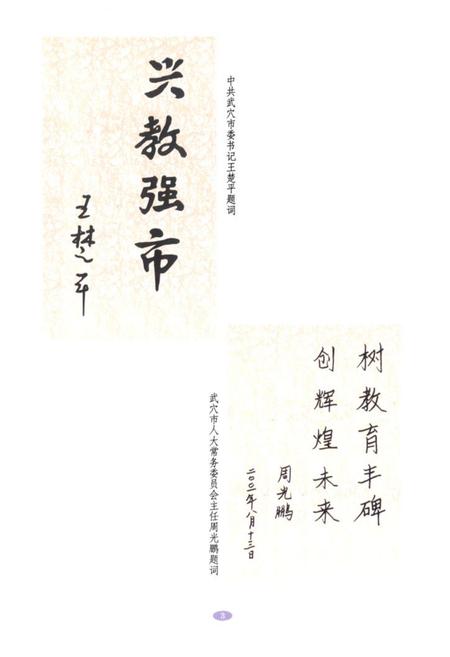 兴教强市
王楚平
中共武穴市委书记王楚平题词
树教育丰碑
创辉煌未来
周光鹏
二〇〇二年八月十三日
武穴市人大常务委员会主任周光鹏题词
3